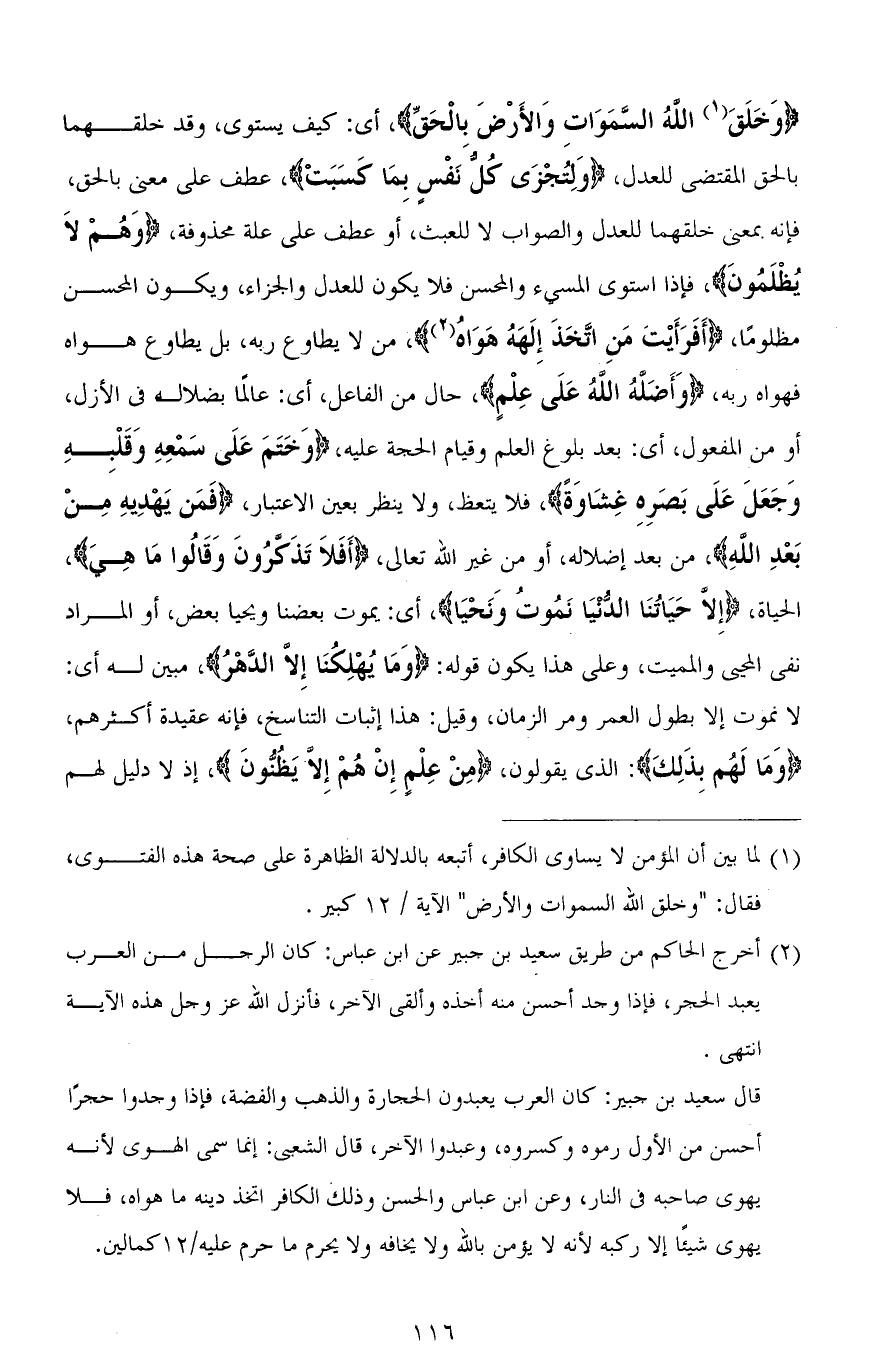 ﴿وَخَلَقَ(١) اللَّهُ السَّمَوَاتِ وَالأَرْضَ بِالْحَقِّ﴾، أى: كيف يستوى، وقد خلقهما
بالحق المقتضى للعدل، ﴿وَلِتُجْزَى كُلُّ نَفْسٍ بِمَا كَسَبَتْ﴾، عطف على معنى بالحق،
فإنه بمعنى خلقهما للعدل والصواب لا للعبث، أو عطف على علة محذوفة، ﴿وَهُمْ لاَ
يُظْلَمُونَ﴾، فإذا استوى المسيء والمحسن فلا يكون للعدل والجزاء، ويكون المحسن
مظلومًا، ﴿أَفَرَأَيْتَ مَنِ اتَّخَذَ إِلَهَهُ هَوَاهُ(٢)﴾، من لا يطاوع ربه، بل يطاوع هواه
فهواه ربه، ﴿وَأَضَلَّهُ اللَّهُ عَلَى عِلْمٍ﴾، حال من الفاعل، أى: عالمًا بضلاله فى الأزل،
أو من المفعول، أى: بعد بلوغ العلم وقيام الحجة عليه، ﴿وَخَتَمَ عَلَى سَمْعِهِ وَقَلْبِهِ
وَجَعَلَ عَلَى بَصَرِهِ غِشَاوَةً﴾، فلا يتعظ، ولا ينظر بعين الاعتبار، ﴿فَمَن يَهْدِيهِ مِنْ
بَعْدِ اللَّهِ﴾، من بعد إضلاله، أو من غير الله تعالى، ﴿أَفَلاَ تَذَكَّرُونَ وَقَالُوا مَا هِيَ﴾،
الحياة، ﴿إِلاَّ حَيَاتُنَا الدُّنْيَا نَمُوتُ وَنَحْيَا﴾، أى: يموت بعضنا ويحيا بعض، أو المراد
نفى المحيى والمميت، وعلى هذا يكون قوله: ﴿وَمَا يُهْلِكُنَا إِلاَّ الدَّهْرُ﴾، مبين له أى:
لا نموت إلا بطول العمر ومر الزمان، وقيل: هذا إثبات التناسخ، فإنه عقيدة أكثرهم،
﴿وَمَا لَهُم بِذَلِكَ﴾: الذى يقولون، ﴿مِنْ عِلْمٍ إِنْ هُمْ إِلاَّ يَظُنُّونَ﴾، إذ لا دليل لهم
(١) لما بين أن المؤمن لا يساوى الكافر، أتبعه بالدلالة الظاهرة على صحة هذه الفتوى،
فقال: "وخلق الله السموات والأرض" الآية / ١٢ كبير .
(٢) أخرج الحاكم من طريق سعيد بن جبير عن ابن عباس: كان الرجل من العرب
يعبد الحجر، فإذا وجد أحسن منه أخذه وألقى الآخر، فأنزل الله عز وجل هذه الآية
انتهى .
قال سعيد بن جبير: كان العرب يعبدون الحجارة والذهب والفضة، فإذا وجدوا حجرًا
أحسن من الأول رموه وكسروه، وعبدوا الآخر، قال الشعبى: إنما سمى الهوى لأنه
يهوى صاحبه فى النار، وعن ابن عباس والحسن وذلك الكافر اتخذ دينه ما هواه، فلا
يهوى شيئًا إلا ركبه لأنه لا يؤمن بالله ولا يخافه ولا يحرم ما حرم عليه/١٢كمالين.
١١٦